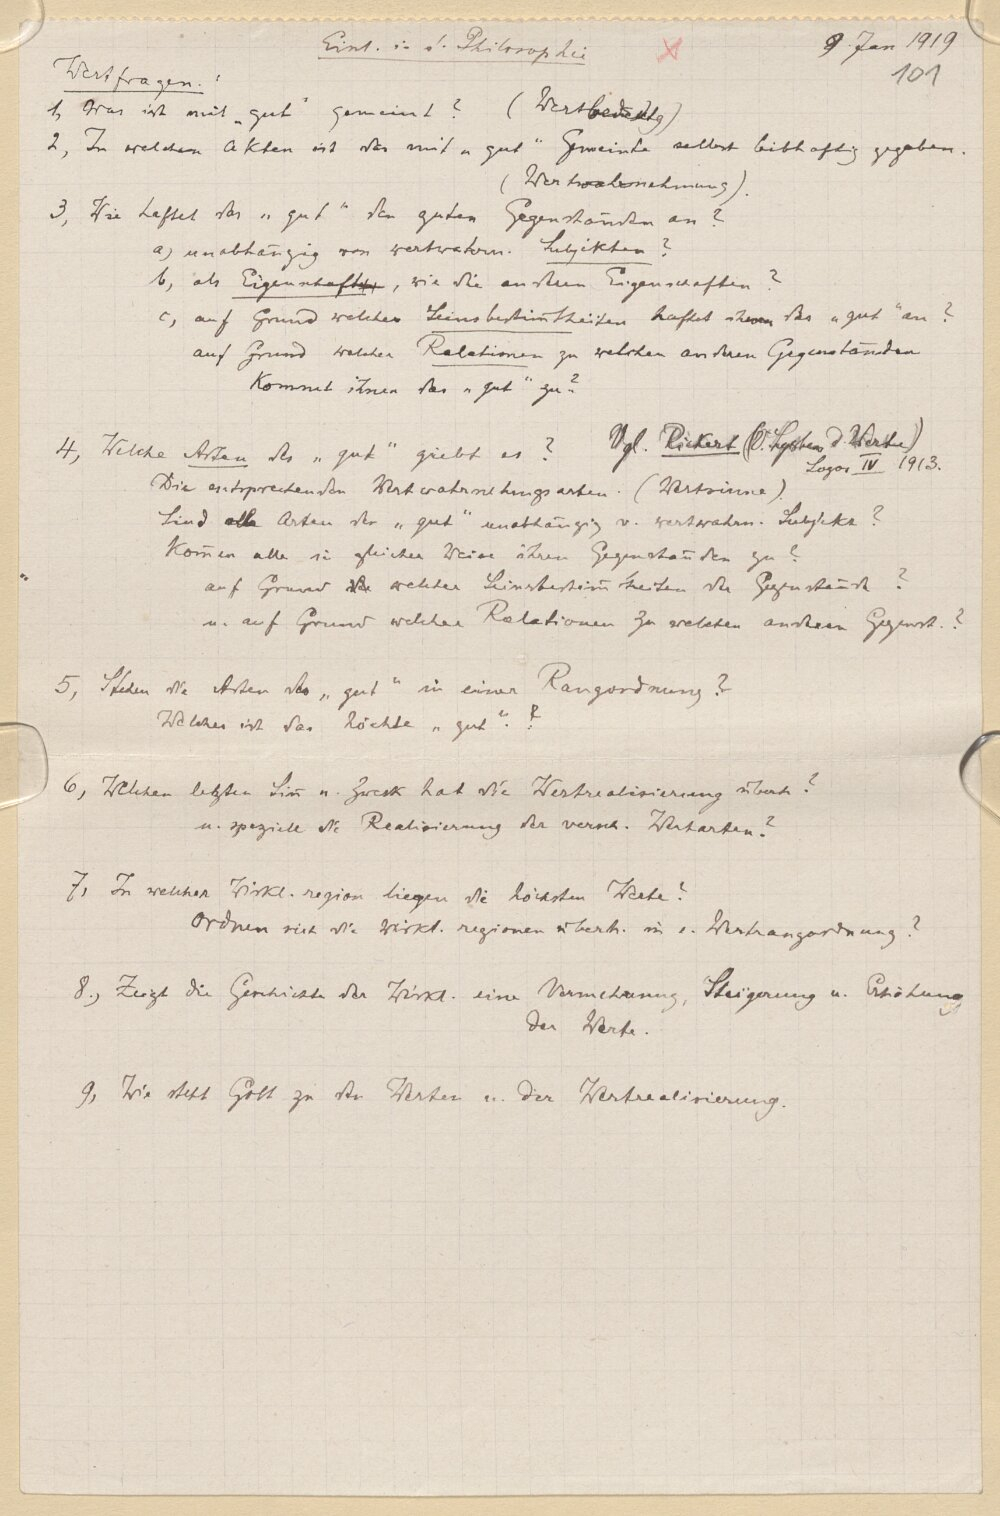 Einl. in d. Philosophie
9. Jan 1919
101
Wertfragen:
1, Was ist mit „gut“ gemeint? (Wertbedeutg)
2, In welchen Akten ist das mit „gut“ Gemeinte selbst leibhaftig gegeben.
(Wertwahrnehmung).
3, Wie haftet das „gut“ den guten Gegenständen an?
a) unabhängig von wertwahrn. Subjekten?
b, als Eigenschaft, wie die anderen Eigenschaften?
c, auf Grund welcher Seinsbestim̅theiten haftet ihnen das „gut“ an?
auf Grund welcher Relationen zu welchen anderen Gegenständen
kommt ihnen das „gut“ zu?
4, Welche Arten des „gut“ giebt es? Vgl. Rickert (V. System d. Werte)
Logos IV 1913.
Die entsprechenden Wertwahrnehmungsarten. (Wertsinne).
Sind alle Arten des „gut“ unabhängig v. wertwahrn. Subjekt?
Kom̅en alle in gleicher Weise ihren Gegenständen zu?
auf Grund welcher Seinsbestim̅theiten der Gegenstände?
u. auf Grund welcher Relationen zu welchen anderen Gegenst.?
5, Stehen die Arten des „gut“ in einer Rangordnung?
Welches ist das höchste „gut“.?
6, Welchen letzten Sin̅ u. Zweck hat die Wertrealisierung überh.?
u. speziell die Realisierung der versch. Wertarten?
7, In welcher Wirkl.region liegen die höchsten Werte?
Ordnen sich die Wirkl.regionen überh. in e. Wertrangordnung?
8., Zeigt die Geschichte der Wirkl. eine Vermehrung, Steigerung u. Erhöhung
der Werte.
9, Wie steht Gott zu den Werten u. der Wertrealisierung.